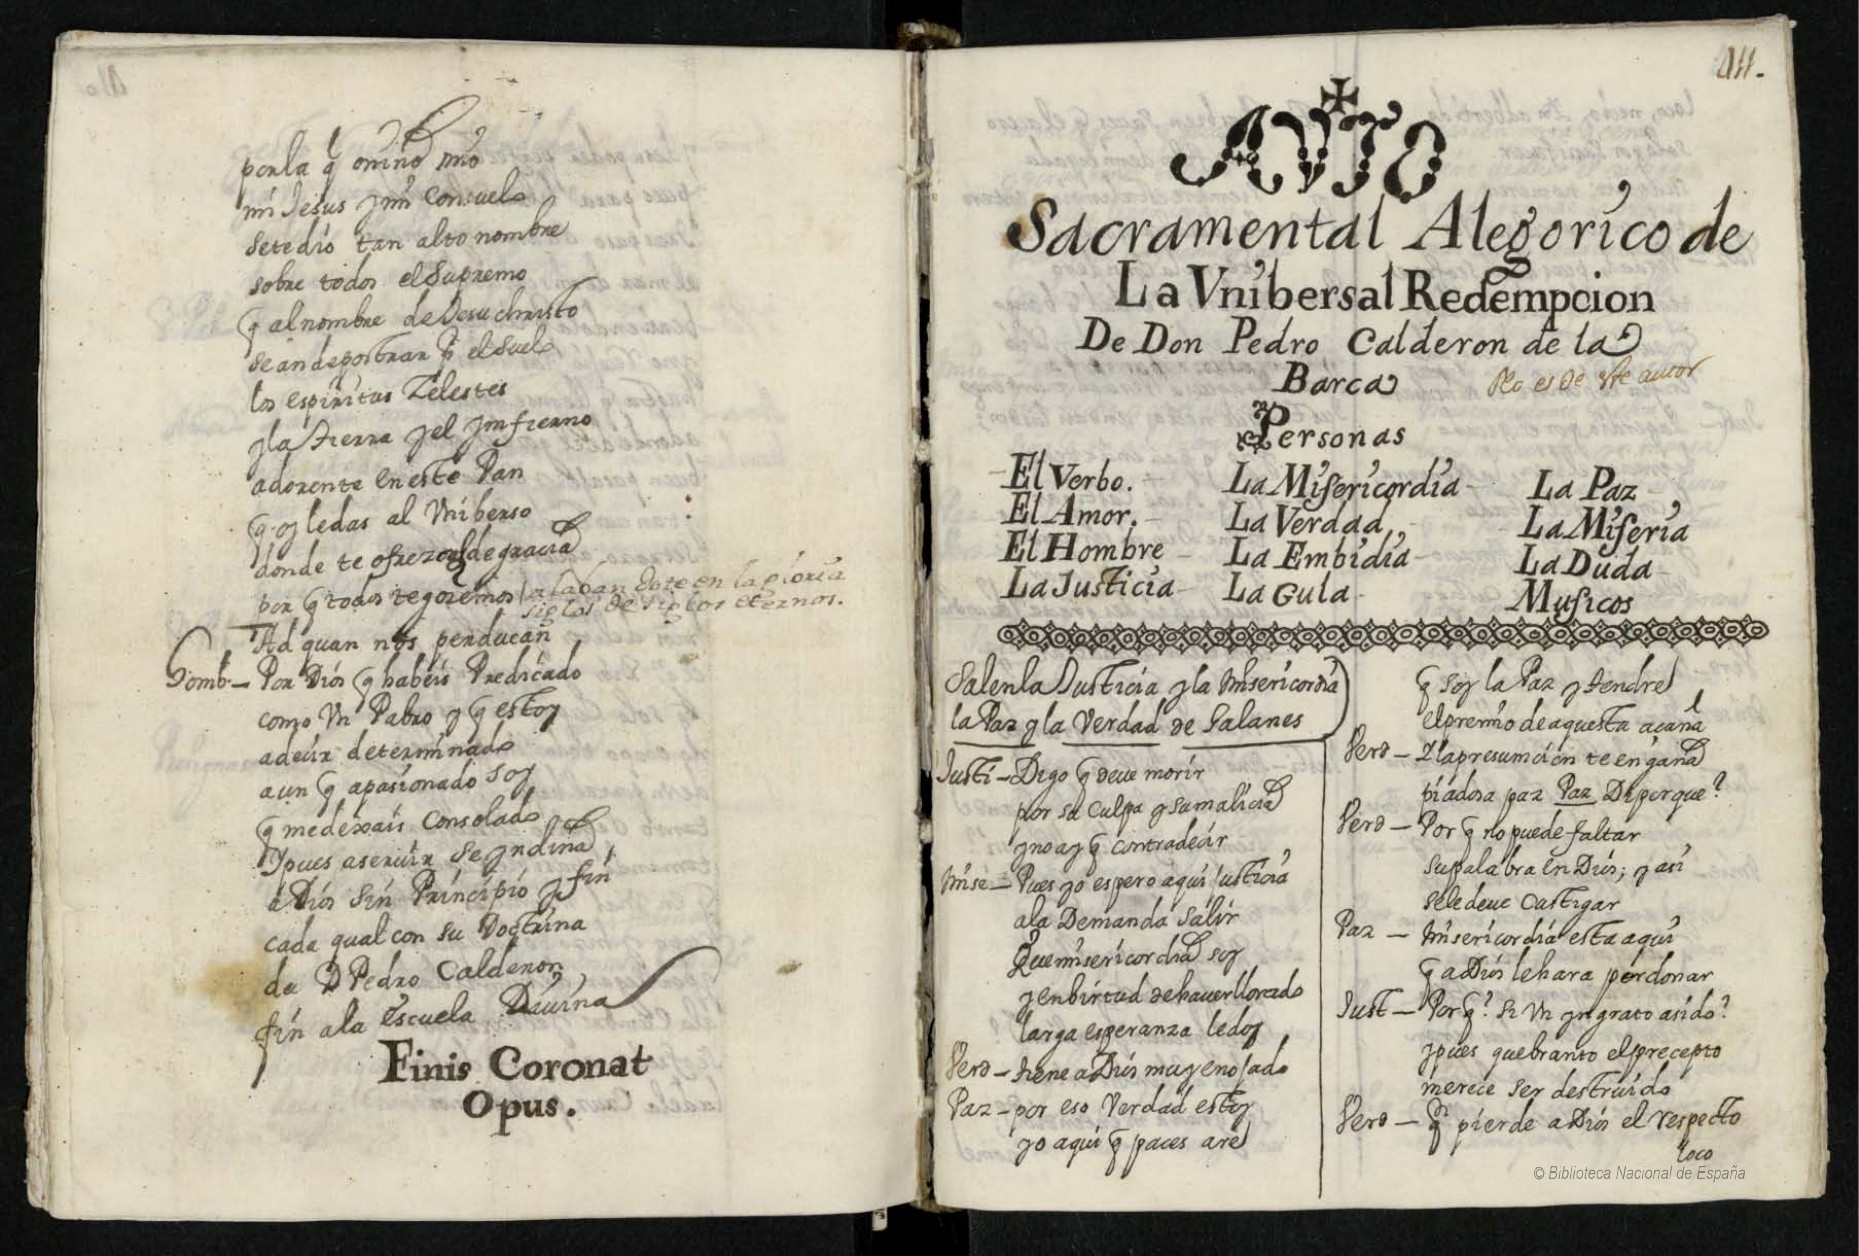 por la q̃ o niño mio
mi Jesus y mi Consuelo
se te dio tan alto nombre
sobre todos el Supremo
q̃ al nombre de Jesuchristo
se an de postrar por el suelo
los espiritus Zelestes
y la tierra y el ymfierno
adorente en este Pan
q̃ oy le das al Vniberso
donde te ofrezco de gracia
por q̃ todos te gozemos alaban dote en la gloria
siglos de siglos eternos.
Ad quan nos perducan
Homb. — Por Dios q̃ habeis Predicado
como Vn Pablo y q̃ estoy
a decir determinado
aun q̃ apasionado soy
q̃ me dexais Consolado
Y pues a seruir se yndina
a Dios Sin Principio y fin
cada qual con su Doctrina
da D Pedro Calderon
fin a la Escuela Diuina
Finis Coronat
Opus.
411.
AVTO
Sacramental Alegorico de
La Vnibersal Redempcion
De Don Pedro Calderon de la
Barca No es de este autor
Personas
El Verbo. La Misericordia La Paz
El Amor. La Verdad La Miseria
El Hombre La Embidia La Duda
La Justicia La Gula Musicos
Salen la Justicia y la Misericordia
la Paz y la Verdad de Galanes
Justi — Digo q̃ deue morir
por su culpa y su malicia
y no ay q̃ contradecir
Mise — Pues yo espero aqui Justicia
a la Demanda salir
Que misericordia soy
y en birtud de hauer llorado
larga esperanza le doy
Verd — tiene a Dios muy enojado
Paz — por eso Verdad estoy
yo aqui q̃ paces are
q̃ soy la Paz y tendre
el premio de aquesta azaña
Verd — Y la presumcion te engaña
piadosa paz Paz Di porque?
Verd — Por q̃ no puede faltar
su palabra en Dios; y asi
se le deue castigar
Paz — Misericordia esta aqui
q̃ a Dios le hara perdonar
Just — Por q̃? Si Vn yngrato a sido?
y pues quebranto el precepto
merece ser destruido
Verd — q̃ pierde a Dios el respecto
loco
© Biblioteca Nacional de España